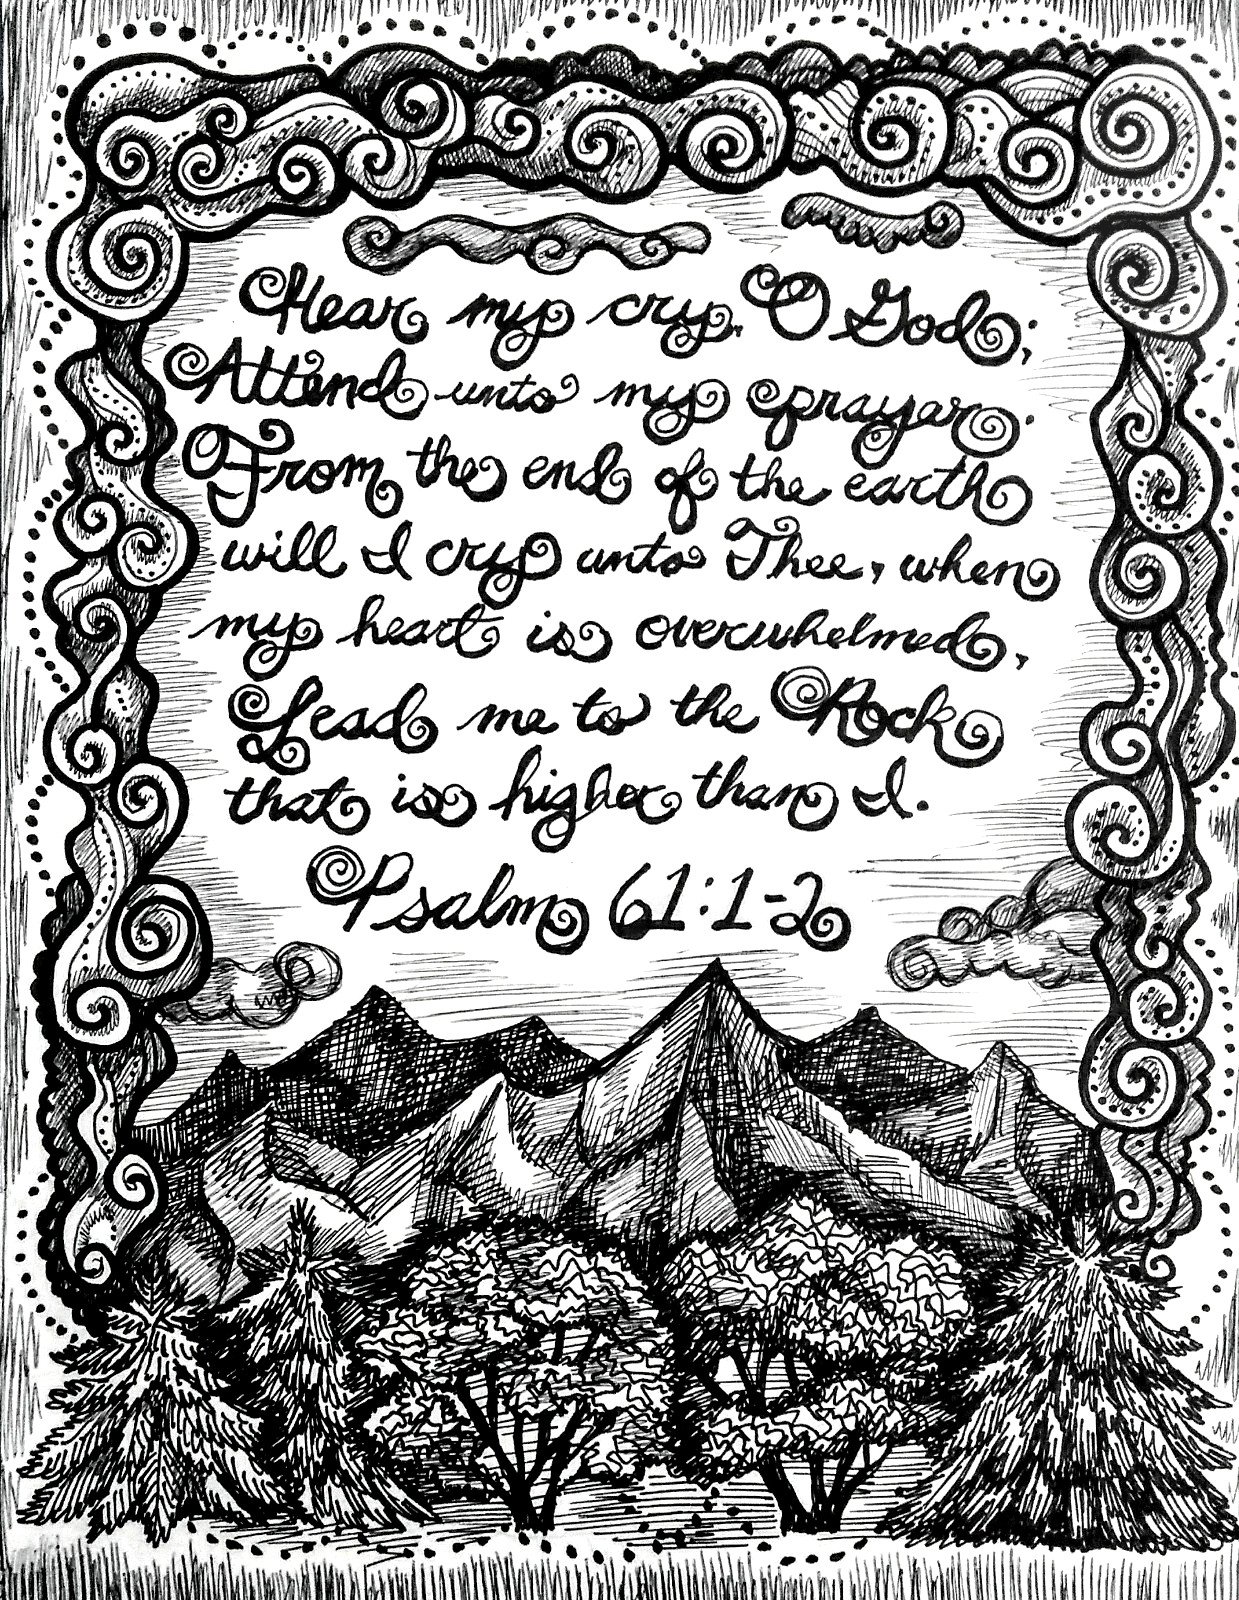 Hear my cry, O God;
Attend unto my prayer.
From the end of the earth
will I cry unto Thee, when
my heart is overwhelmed,
Lead me to the Rock
that is higher than I.
Psalm 61:1-2